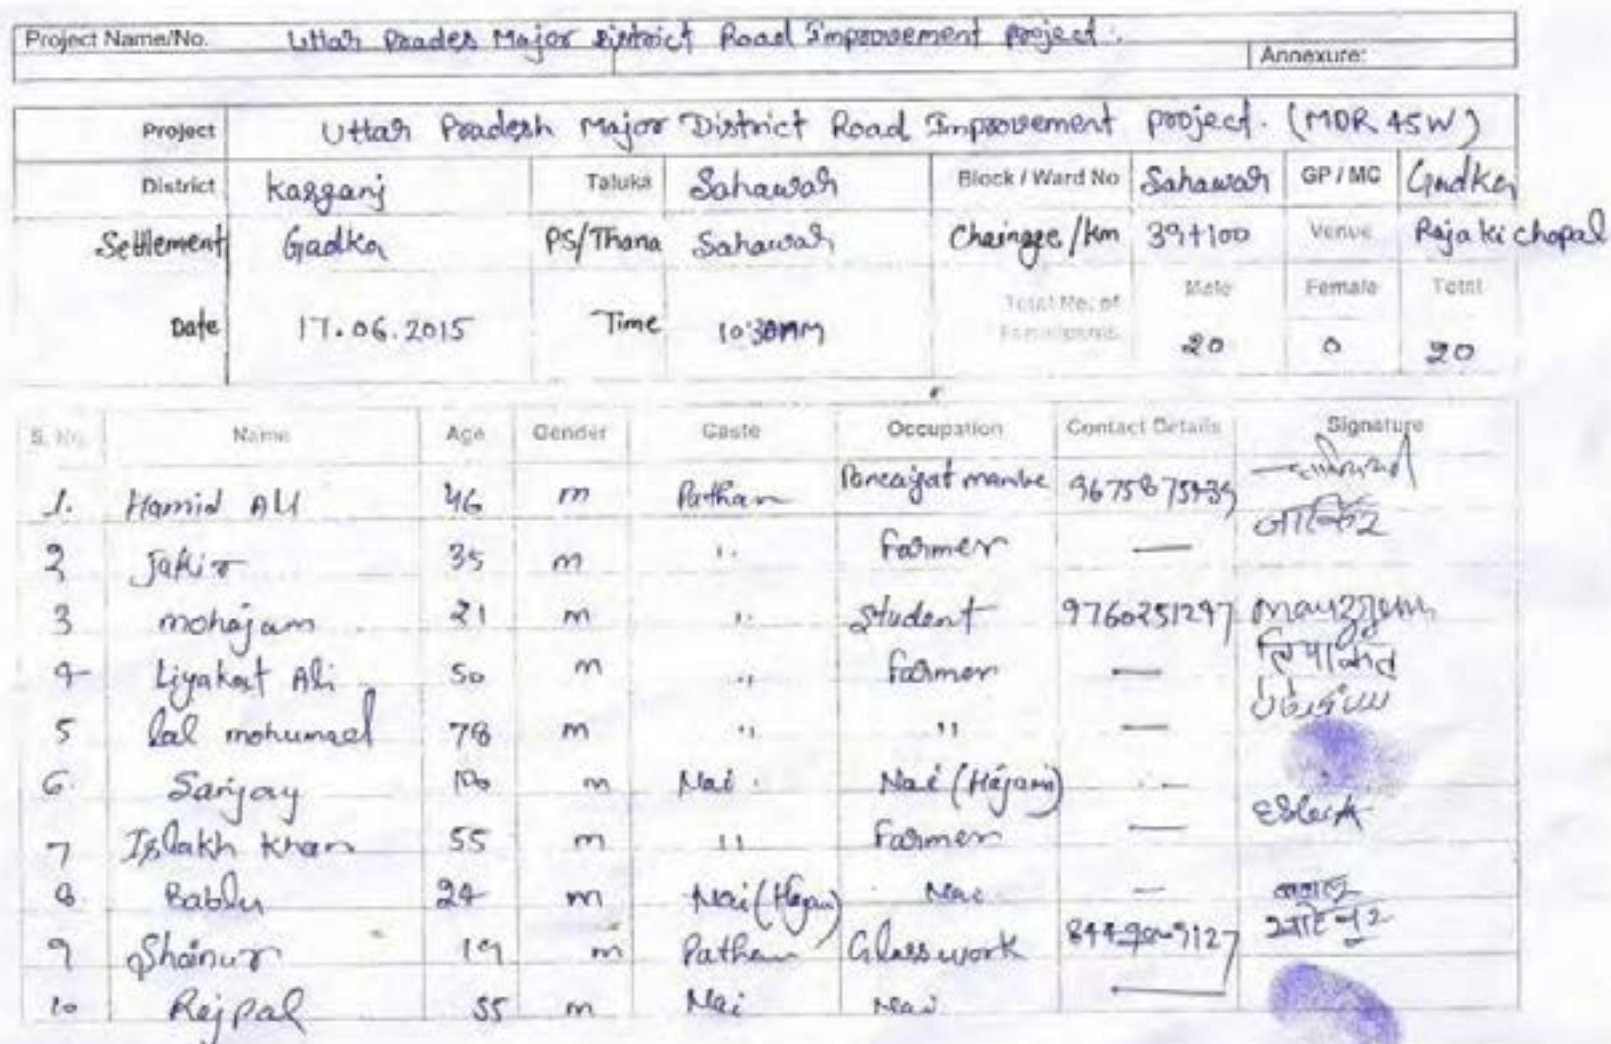 Project Name/No. Uttar Prades Major District Road Improvement project.
Annexure:
Project Uttar Pradesh Major District Road Improvement project. (MDR 45W)
District Kasganj Taluka Sahawar Block / Ward No Sahawar GP / MC Gadka
Settlement Gadka PS/Thana Sahawar Chainage /km 39+100 Venue Raja ki chopal
Total No. of Male Female Total
Date 17.06.2015 Time 10:30AM 20 0 20
S. No. Name Age Gender Caste Occupation Contact Details Signature
1. Hamid Ali 46 m Pathan
2 Jakir 35 m ,, Farmer — जाकिर
3 mohajam 21 m ,, Student 9760251297 mauzzem
4 Liyakat Ali 50 m ,, Farmer — लियाकत
5 lal mohumael 78 m ,, ,, —
6. Sanjay m Nai Nai (Hajam)
7 Islakh Khan 55 m ,, Farmer —
8. Bablu 24 m Nai (Hajam) Nai —
9 Shainur 19 m Pathan Glass work
10 Rajpal 55 m Nai Nai —